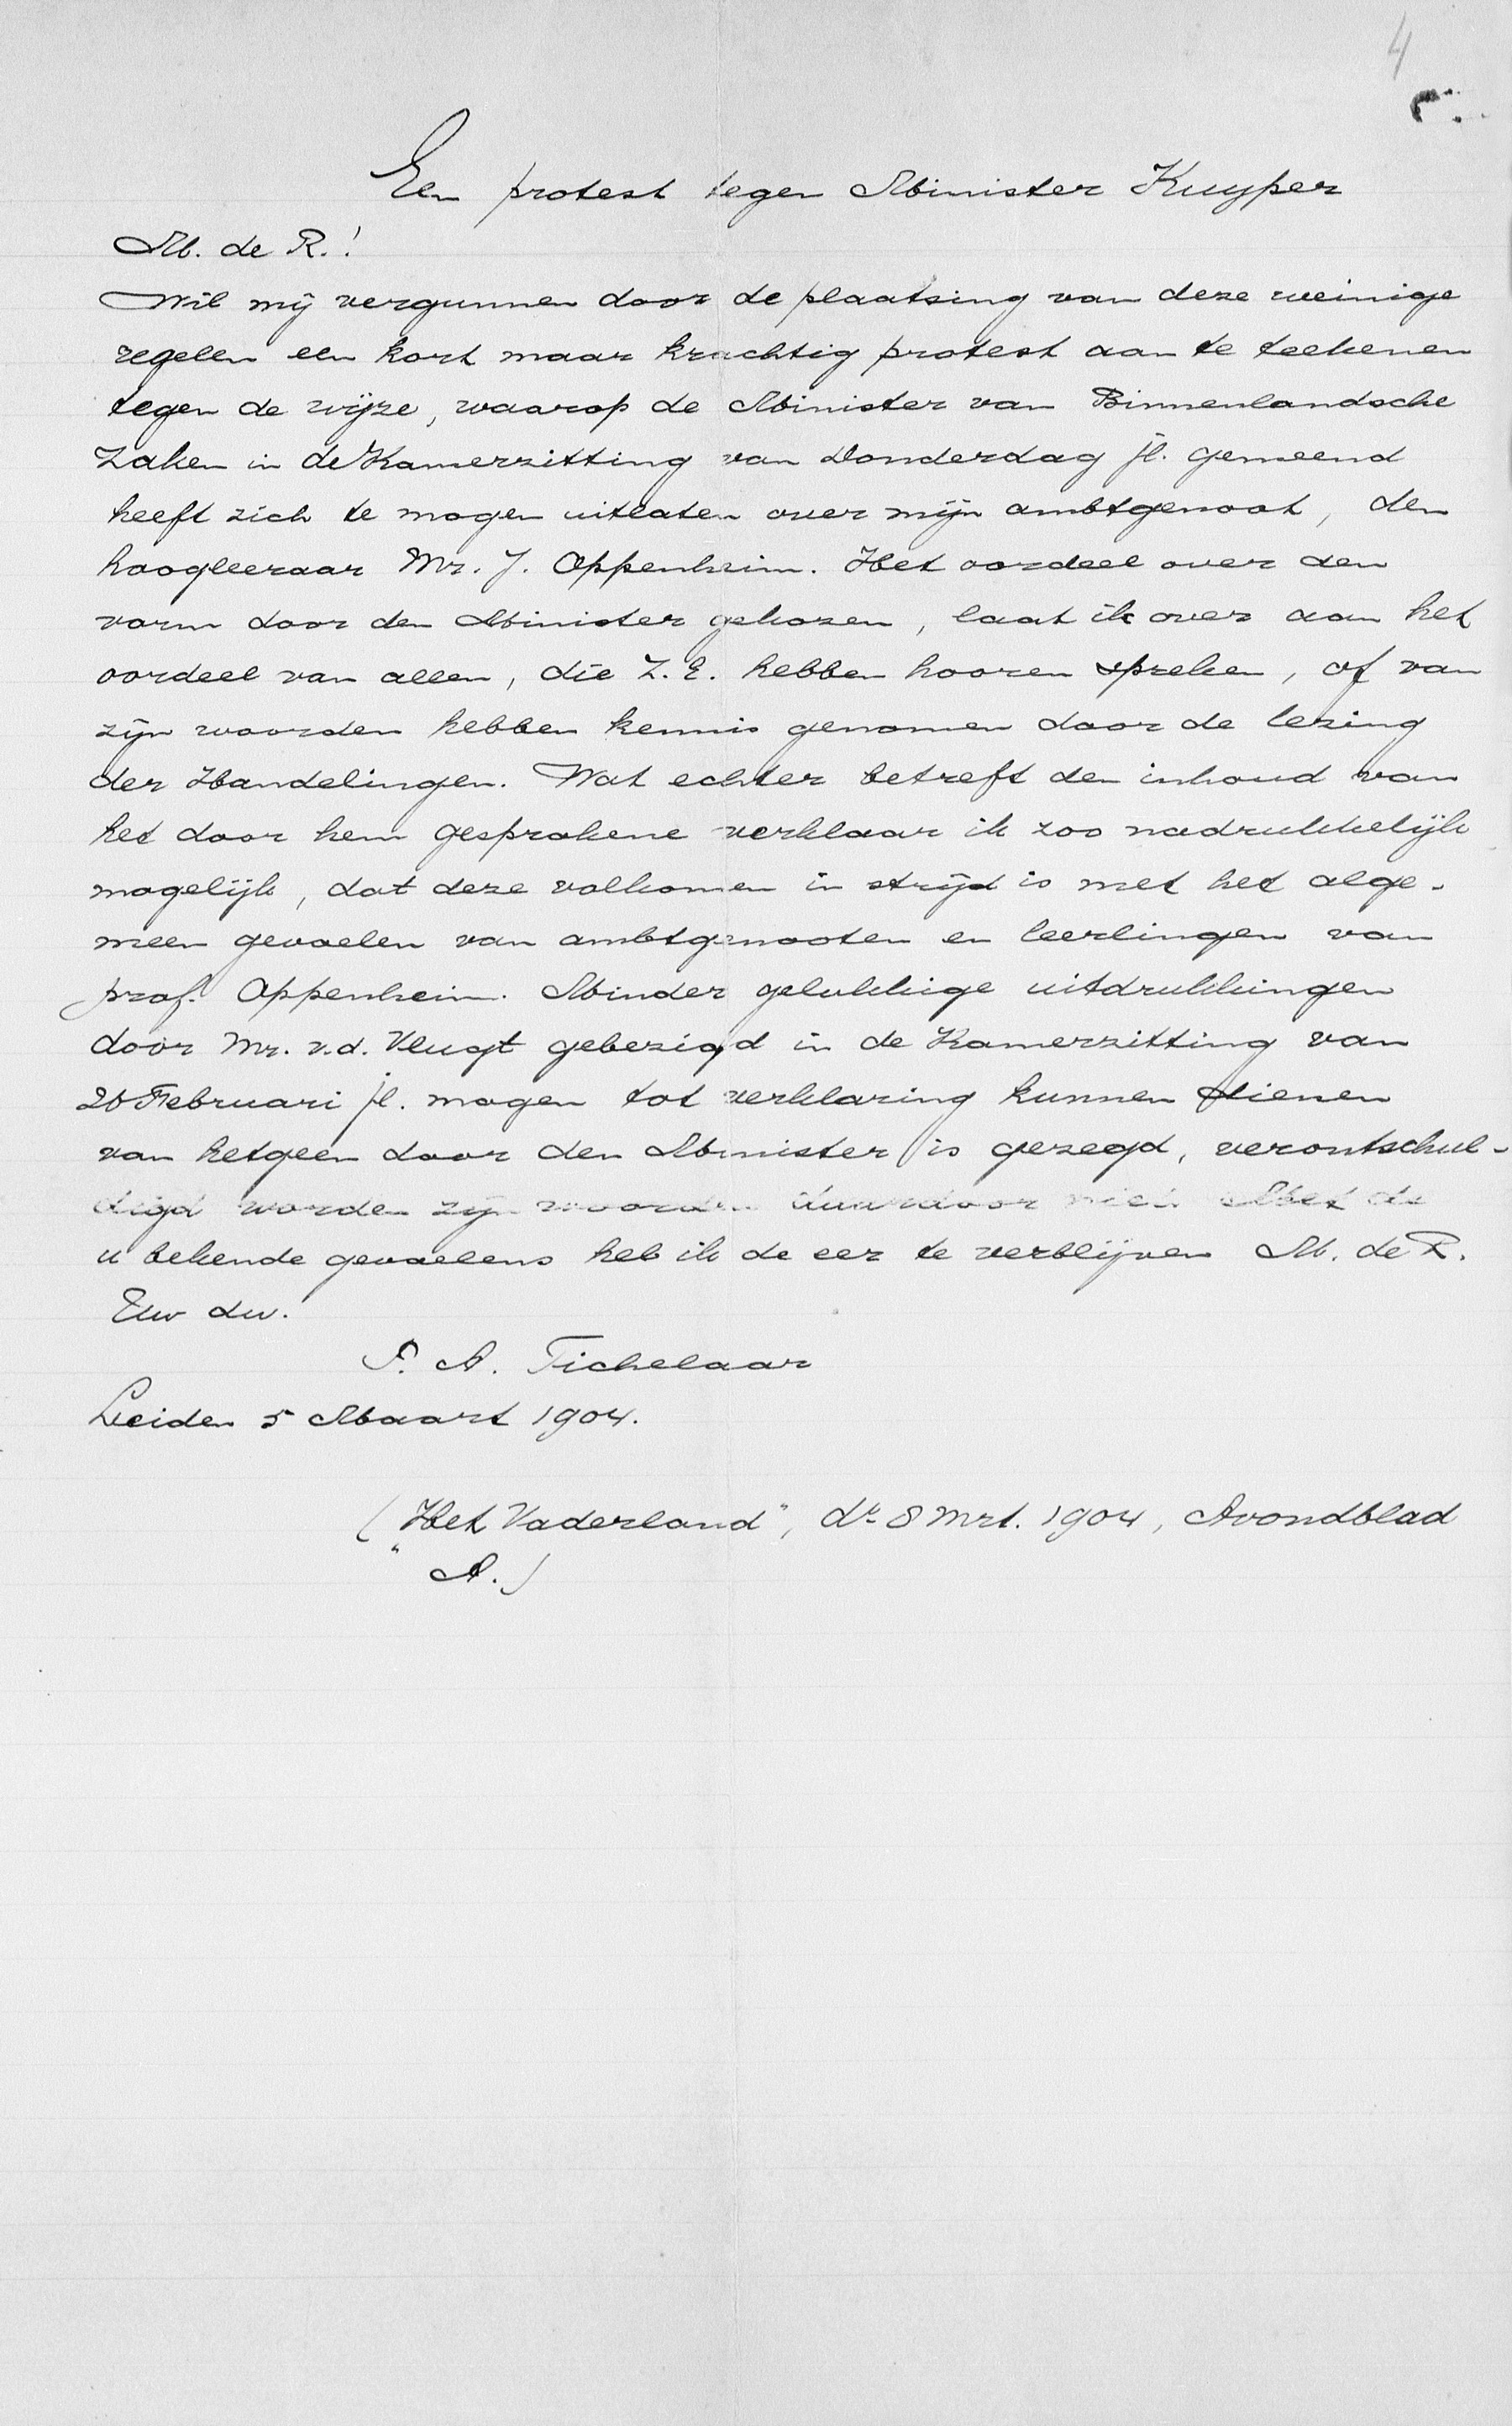 4
Een protest tegen Minister Kuyper
M. de R.!
Wil mij vergunnen door de plaatsing van deze weinige
regelen een kort maar krachtig protest aan te teekenen
tegen de wijze, waarop de Minister van Binnenlandsche
Zaken in de Kamerzitting van Donderdag jl. gemeend
heeft zich te mogen uitlaten over mijn ambtgenoot, den
hoogleeraar Mr. J. Oppenheim. Het oordeel over den
vorm door den Minister gekozen, laat ik over aan het
oordeel van allen, die Z. E. hebben hooren spreken, of van
zijn woorden hebben kennis genomen door de lezing
der Handelingen. Wat echter betreft den inhoud van
het door hem gesprokene verklaar ik zoo nadrukkelijk
mogelijk, dat deze volkomen in strijd is met het alge-
meen gevoelen van ambtgenooten en leerlingen van
prof. Oppenheim. Minder gelukkige uitdrukkingen
door Mr. v.d. Vlugt gebezigd in de Kamerzitting van
26 Februari jl. mogen tot verklaring kunnen dienen
van hetgeen door den Minister is gezegd, verontschul-
digd worden zijn woorden daardoor niet. Met de
u bekende gevoelens heb ik de eer te verblijven M. de R.
Uw dw.
P. A. Tichelaar
Leiden 5 Maart 1904.
("Het Vaderland", dd. 8 Mrt. 1904, Avondblad
A.)